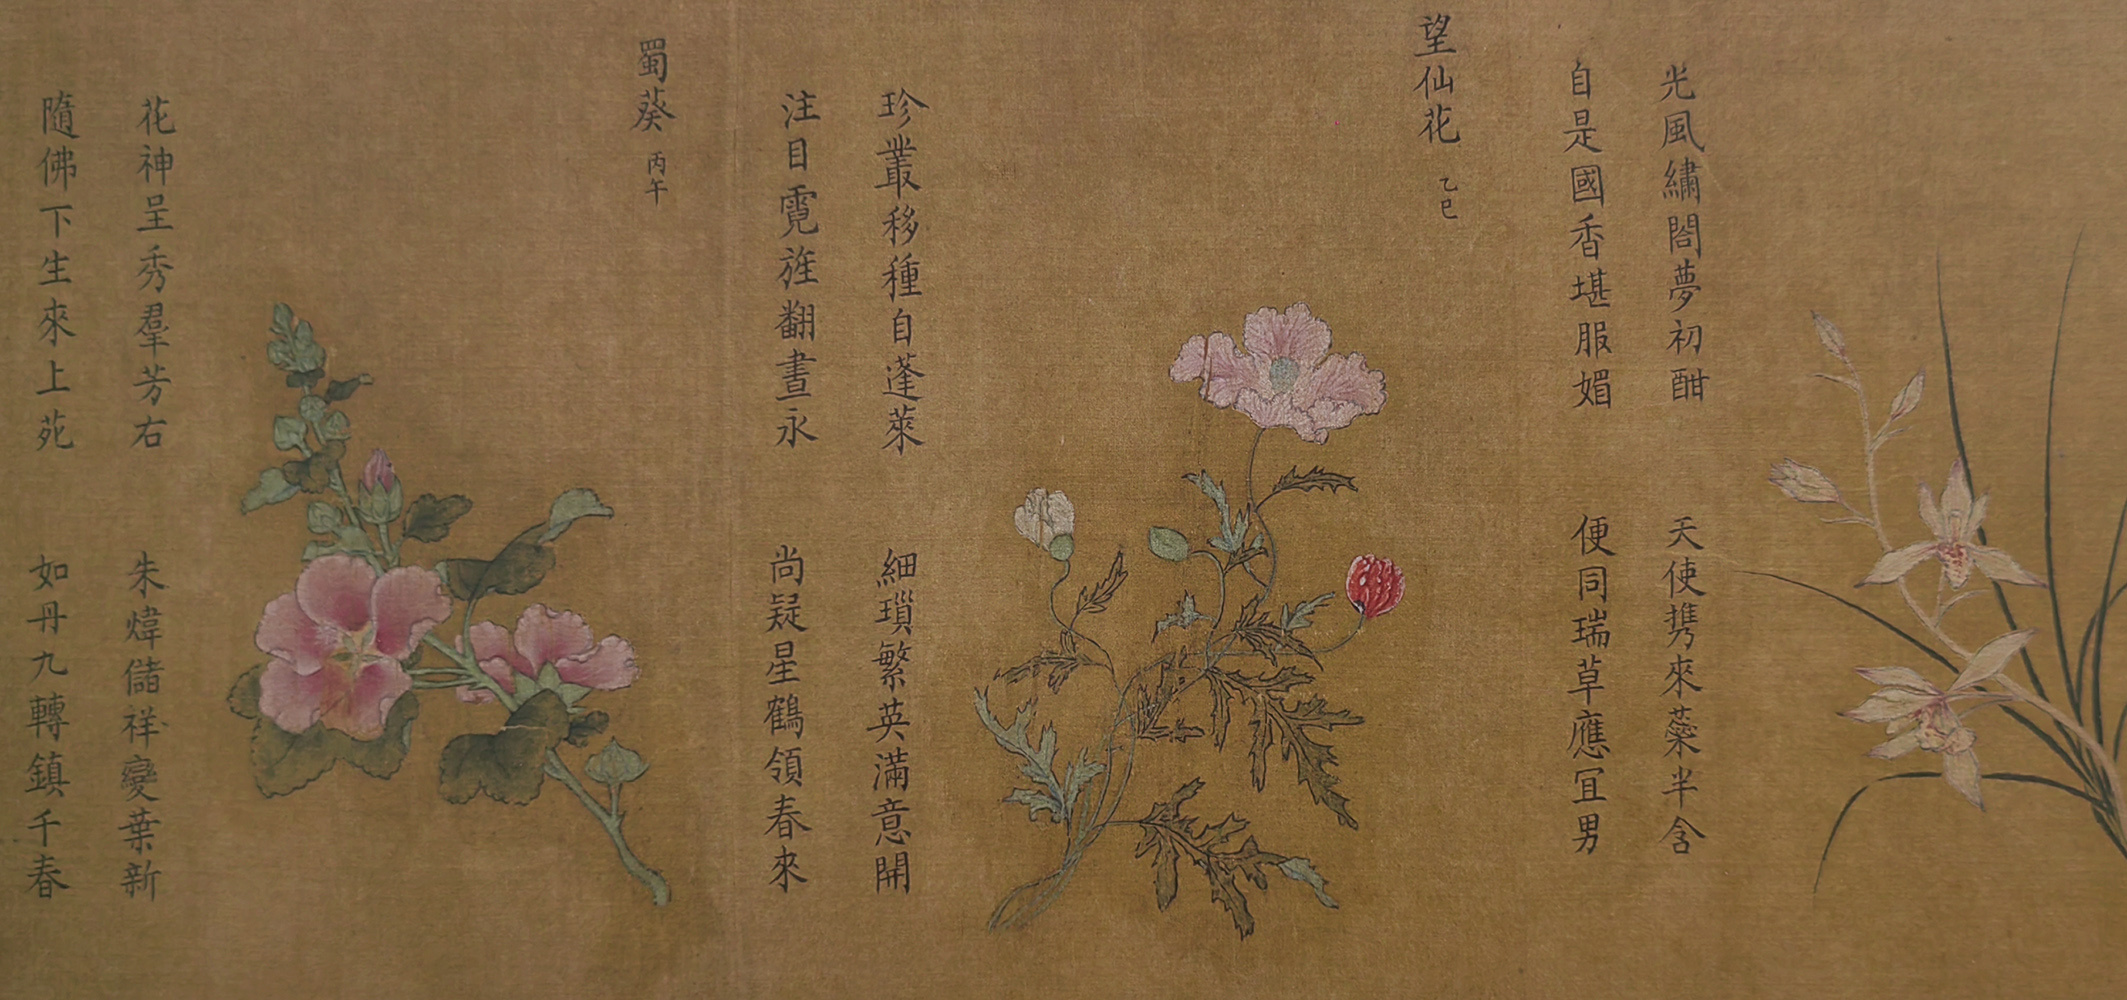 光風繡閤夢初酣 天使携來蘂半含
自是國香堪服媚 便同瑞草應冝男
望仙花 乙巳
珍叢移種自蓬萊 細瑣繁英滿意開
注目霓旌翻晝永 尚疑星鶴領春來
蜀葵 丙午
花神呈秀羣芳右 朱煒儲祥變葉新
隨佛下生來上苑 如丹九轉鎮千春